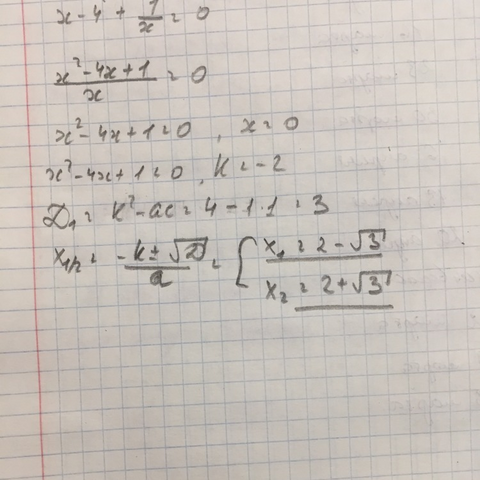 x - 4 + 1/x = 0
(x² - 4x + 1)/x = 0
x² - 4x + 1 = 0 , x = 0
x² - 4x + 1 = 0 , K = -2
D₁ = K² - ac = 4 - 1·1 = 3
x₁/₂ = (-K ± √D)/a = { x₁ = 2 - √3
x₂ = 2 + √3